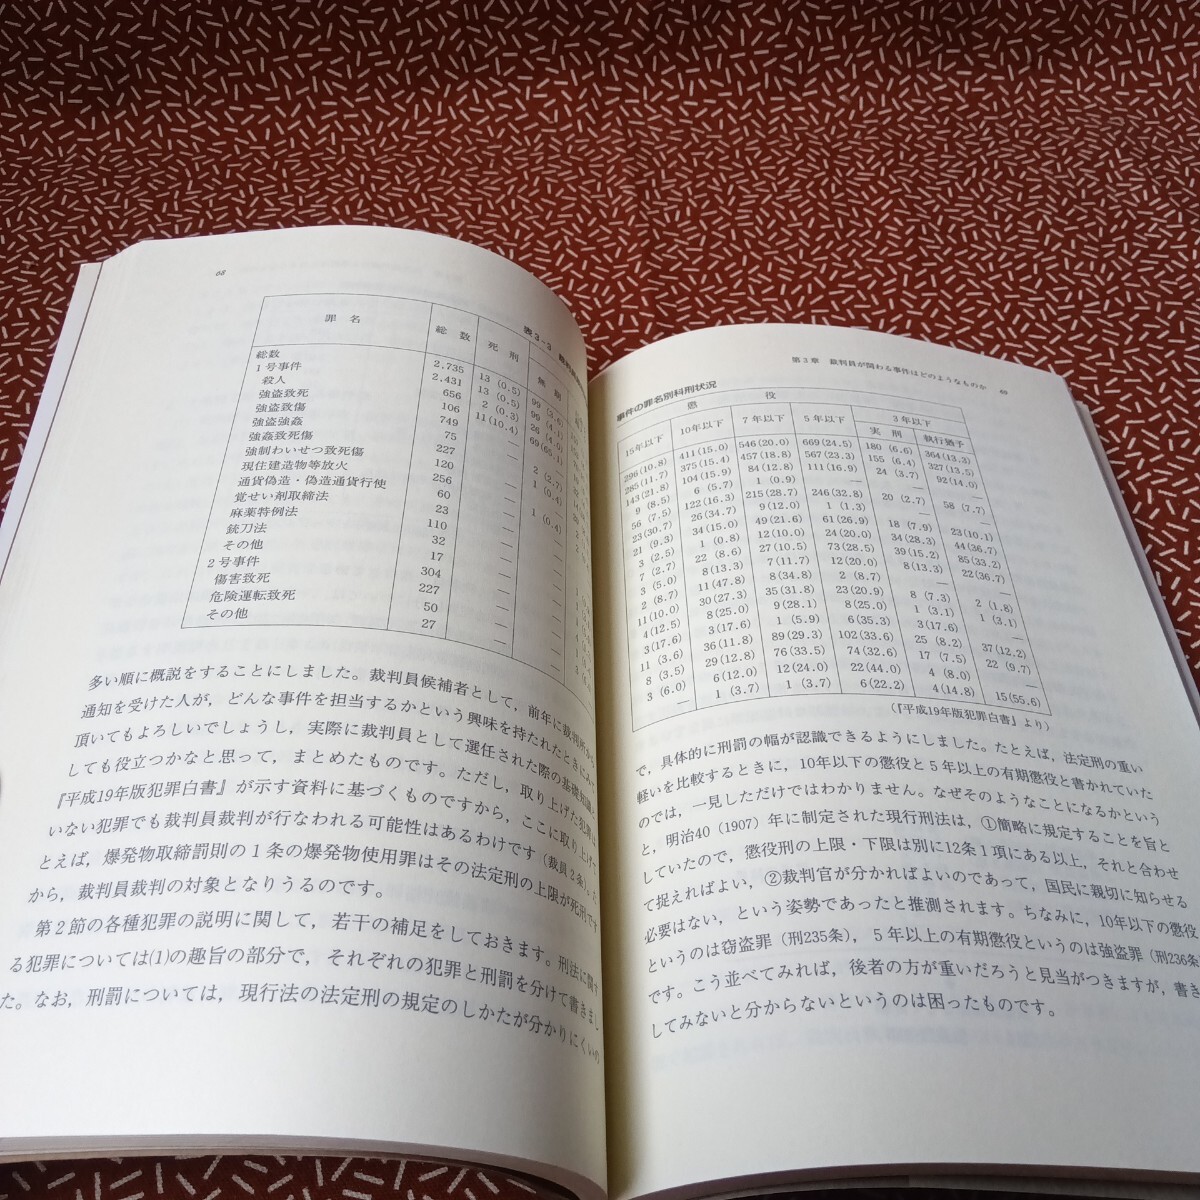 68
表3-3
罪 名
総 数
死 刑
無 期
総数 2,735 13 (0.5) 99 (3.6)
1号事件 2,431 13 (0.5) 99 (4.1)
殺人 656 2 (0.3) 26 (4.0)
強盗致死 106 11 (10.4) 69 (65.1)
強盗致傷 749 —
強盗強姦 75 — 2 (2.7)
強姦致死傷 227 — 1 (0.4)
強制わいせつ致死傷 120 —
現住建造物等放火 256 — 1 (0.4)
通貨偽造・偽造通貨行使 60 — —
覚せい剤取締法 23 — —
麻薬特例法 110 — —
銃刀法 32 — —
その他 17 — —
2号事件 304 — —
傷害致死 227 — —
危険運転致死 50 — —
その他 27 — —
多い順に概説をすることにしました。裁判員候補者として,前年に裁判所から
通知を受けた人が,どんな事件を担当するかという興味を持たれたときにみて
頂いてもよろしいでしょうし,実際に裁判員として選任された際の基礎知識と
しても役立つかなと思って,まとめたものです。ただし,取り上げた犯罪は
『平成19年版犯罪白書』が示す資料に基づくものですから,ここに取り上げて
いない犯罪でも裁判員裁判が行なわれる可能性はあるわけです(裁員2条)。た
とえば,爆発物取締罰則の1条の爆発物使用罪はその法定刑の上限が死刑です
から,裁判員裁判の対象となりうるのです。
第2節の各種犯罪の説明に関して,若干の補足をしておきます。刑法に関す
る犯罪については(1)の趣旨の部分で,それぞれの犯罪と刑罰を分けて書きまし
た。なお,刑罰については,現行法の法定刑の規定のしかたが分かりにくいの
第3章 裁判員が関わる事件はどのようなものか 69
事件の罪名別科刑状況
懲 役
15年以下 10年以下 7年以下 5年以下 3年以下
実 刑 執行猶予
296(10.8) 411(15.0) 546(20.0) 669(24.5) 180 (6.6) 364(13.3)
285(11.7) 375(15.4) 457(18.8) 567(23.3) 155 (6.4) 327(13.5)
143(21.8) 104(15.9) 84(12.8) 111(16.9) 24 (3.7) 92(14.0)
9 (8.5) 6 (5.7) 1 (0.9) — — —
56 (7.5) 122(16.3) 215(28.7) 246(32.8) 20 (2.7) 58 (7.7)
23(30.7) 26(34.7) 9(12.0) 1 (1.3) — —
21 (9.3) 34(15.0) 49(21.6) 61(26.9) 18 (7.9) 23(10.1)
3 (2.5) 1 (0.8) 12(10.0) 24(20.0) 34(28.3) 44(36.7)
7 (2.7) 22 (8.6) 27(10.5) 73(28.5) 39(15.2) 85(33.2)
3 (5.0) 8(13.3) 7(11.7) 12(20.0) 8(13.3) 22(36.7)
2 (8.7) 11(47.8) 8(34.8) 2 (8.7) — —
11(10.0) 30(27.3) 35(31.8) 23(20.9) 8 (7.3) 2 (1.8)
4(12.5) 8(25.0) 9(28.1) 8(25.0) 1 (3.1) 1 (3.1)
3(17.6) 3(17.6) 1 (5.9) 6(35.3) 3(17.6) —
11 (3.6) 36(11.8) 89(29.3) 102(33.6) 25 (8.2) 37(12.2)
8 (3.5) 29(12.8) 76(33.5) 74(32.6) 17 (7.5) 22 (9.7)
3 (6.0) 6(12.0) 12(24.0) 22(44.0) 4 (8.0) —
— 1 (3.7) 1 (3.7) 6(22.2) 4(14.8) 15(55.6)
(『平成19年版犯罪白書』より)
で,具体的に刑罰の幅が認識できるようにしました。たとえば,法定刑の重い
軽いを比較するときに,10年以下の懲役と5年以上の有期懲役と書かれていた
のでは,一見しただけではわかりません。なぜそのようなことになるかという
と,明治40(1907)年に制定された現行刑法は,①簡略に規定することを旨と
していたので,懲役刑の上限・下限は別に12条1項にある以上,それと合わせ
て捉えればよい,②裁判官が分かればよいのであって,国民に親切に知らせる
必要はない,という姿勢であったと推測されます。ちなみに,10年以下の懲役
というのは窃盗罪(刑235条),5年以上の有期懲役というのは強盗罪(刑236条)
です。こう並べてみれば,後者の方が重いだろうと見当がつきますが,書き
してみないと分からないというのは困ったものです。